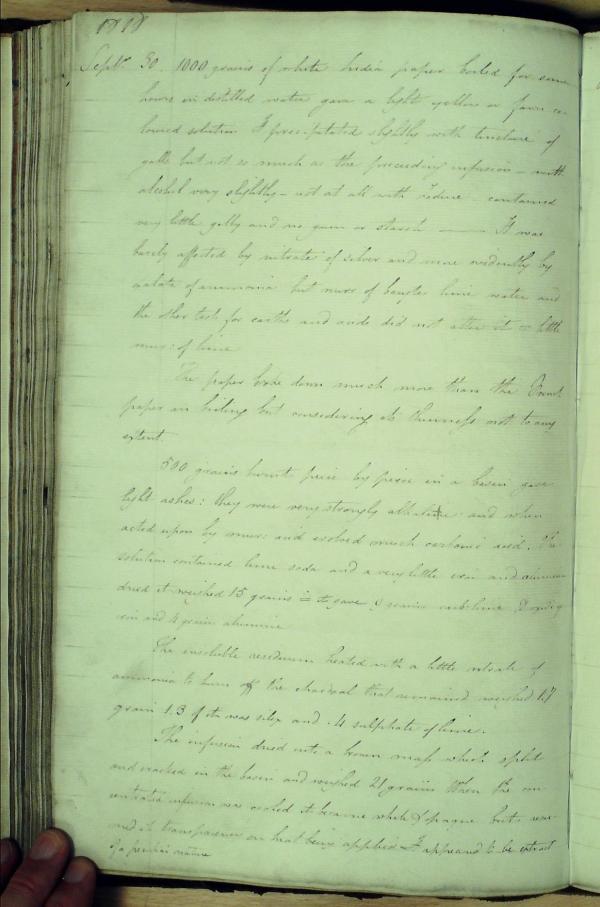 1818
Septr 30. 1000 grains of white India paper boiled for some
hours in distilled water gave a light yellow or fawn co-
loured solution It precipitated slightly with tincture of
galls but not so much as the preceeding infusion - with
alcohol very slightly - not at all with Iodine - contained
very little jelly and no gum or starch It was
barely affected by nitrate of silver and more evidently by
oxalate of ammonia but mur: of barytes lime water and
the other tests for earths and acids did not alter it = little
mur: of lime
The paper broke down much more than the
paper in boiling but considering its thinness not to any
extent.
500 grains burnt piece by piece in a basin gave
light ashes: they were very strongly alkaline and when
acted upon by mur: acid evolved much carbonic acid. The
solution contained lime soda and a very little iron and alumine
dried it weighed 15 grains = to gave 9 grains carb: lime
iron and 4 grain alumine
The insoluble residuum heated with a little nitrate of
ammonia to burn off the charcoal that remained weighed 1.7
grain 1.3 of it was silex and .4 sulphate of lime.
The infusion dried into a brown mass which split
and cracked in the basin and weighed 21 grains When the con
centrated infusion was cooled it became white & opaque but resu-
med its transparence on heat being applied It appeared to be extract
of a peculiar nature